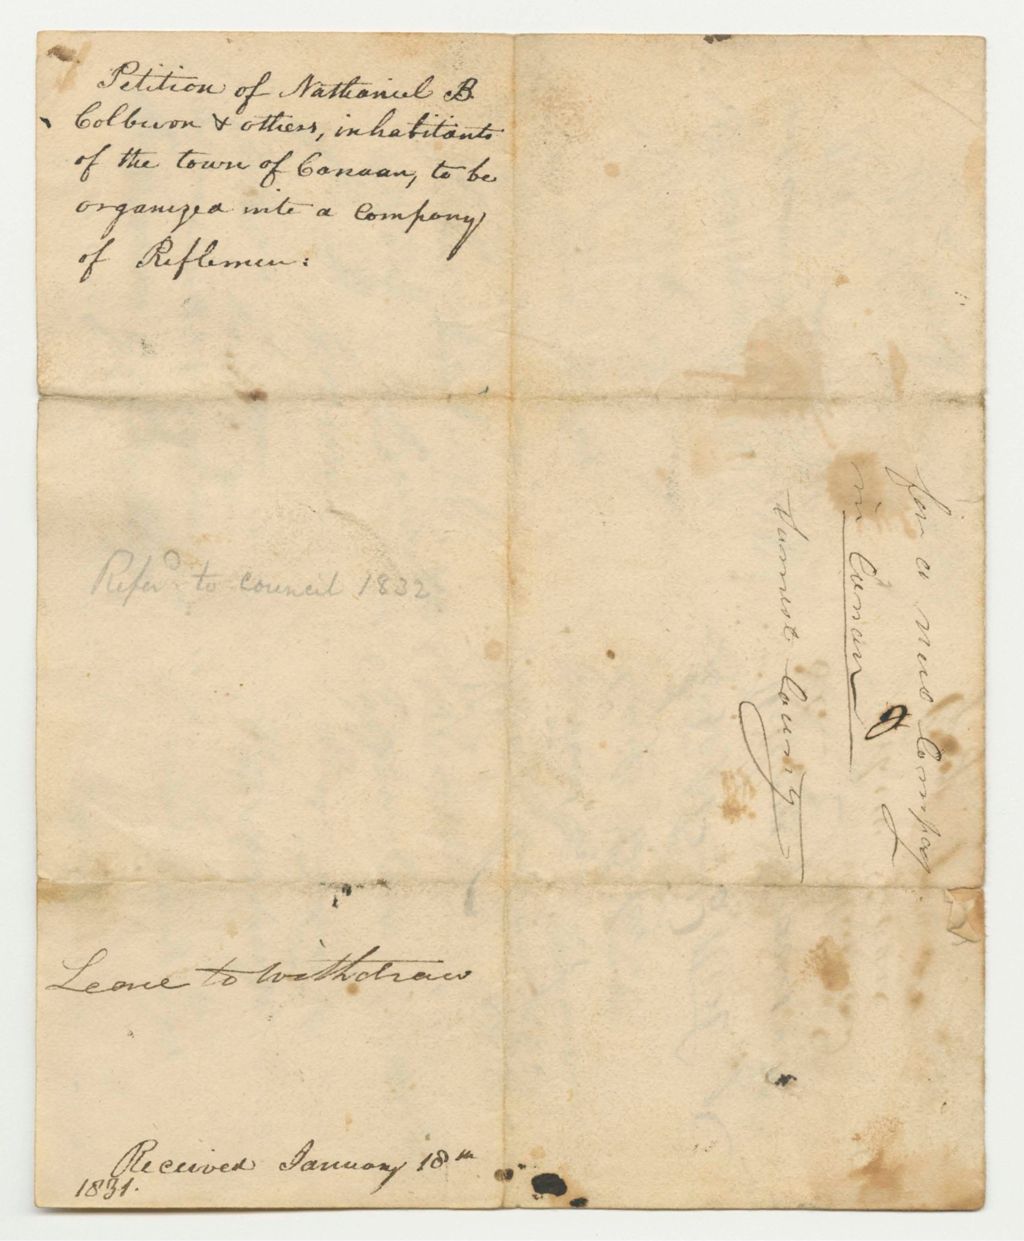 Petition of Nathaniel B
Colburon & others, inhabitants
of the town of Canaan, to be
organized into a Company
of Riflemen:
Refer^d to council 1832
Leave to withdraw
Received January 18^th
1831.
for a new Compay
in Canan
Sumerset County